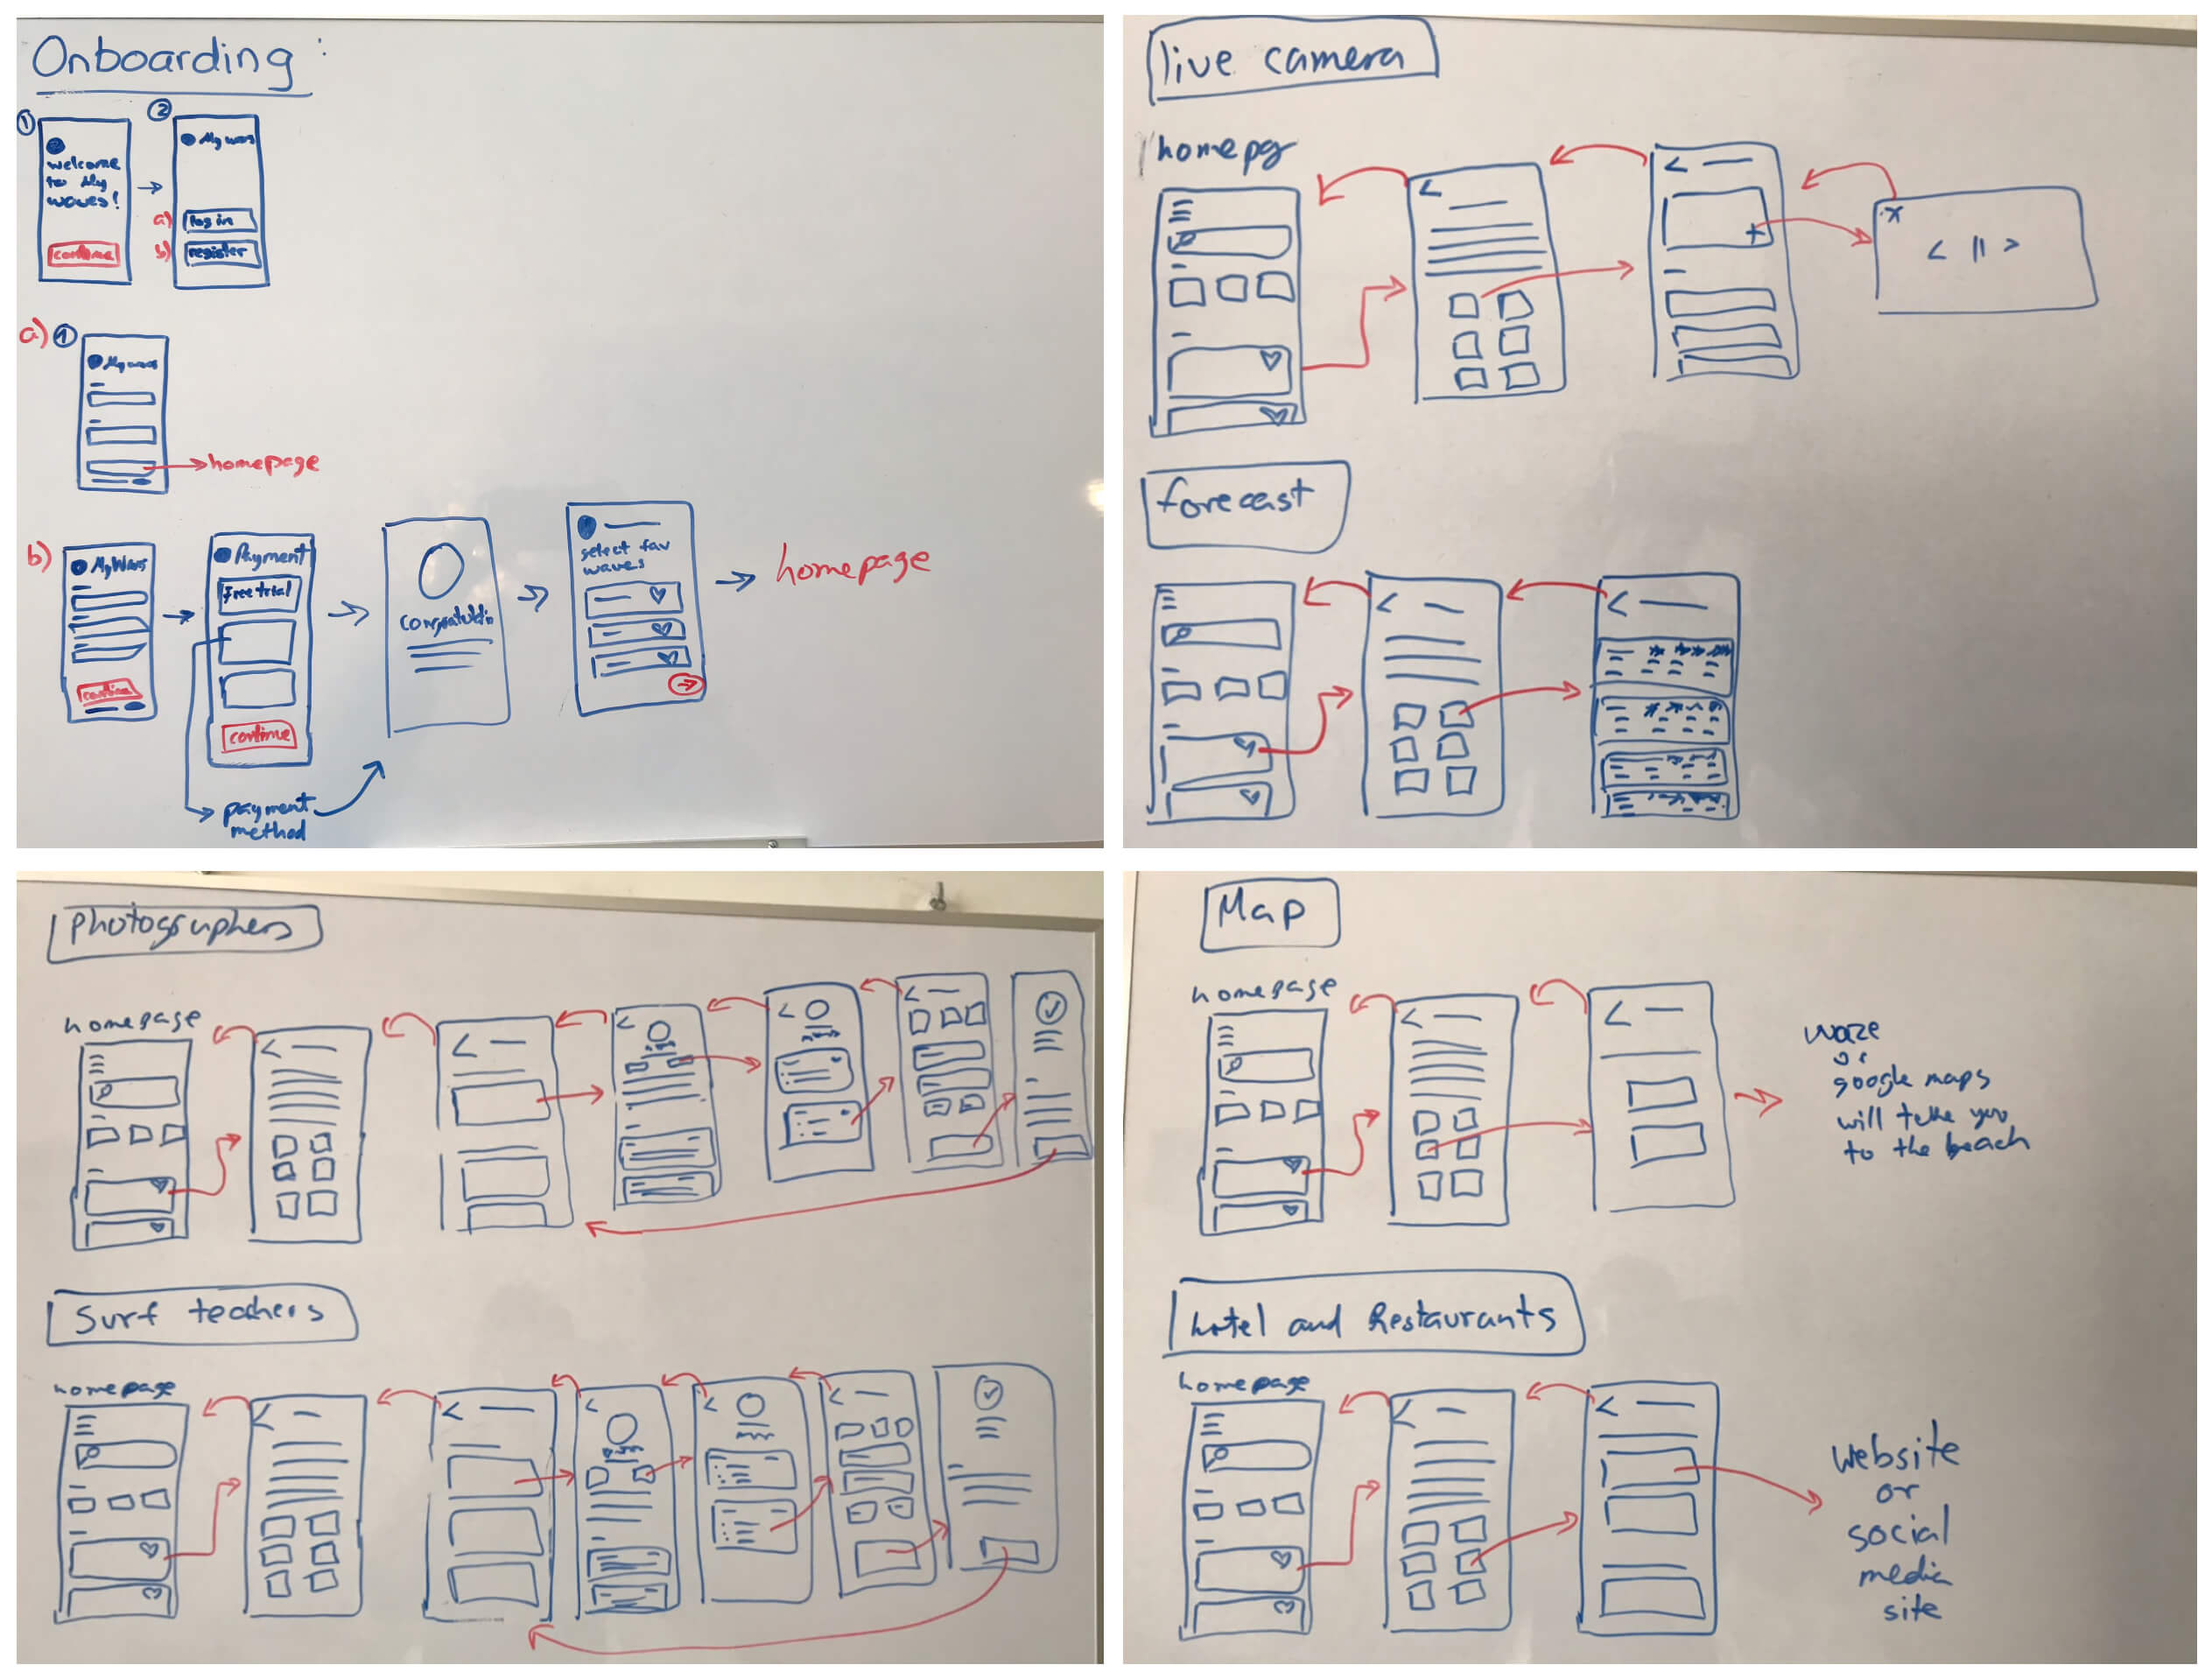 Onboarding:
1
2
welcome
to My
waves!
continue
My waves
a)
log in
b)
register
a)
1
My waves
homepage
b)
My Waves
continue
Payment
Free trial
continue
payment
method
select fav
waves
homepage
live camera
homepg
x
< || >
forecast
Photographers
homepage
Surf teachers
homepage
Map
homepage
waze
or
google maps
will take you
to the beach
hotel and Restaurants
homepage
website
or
social
media
site